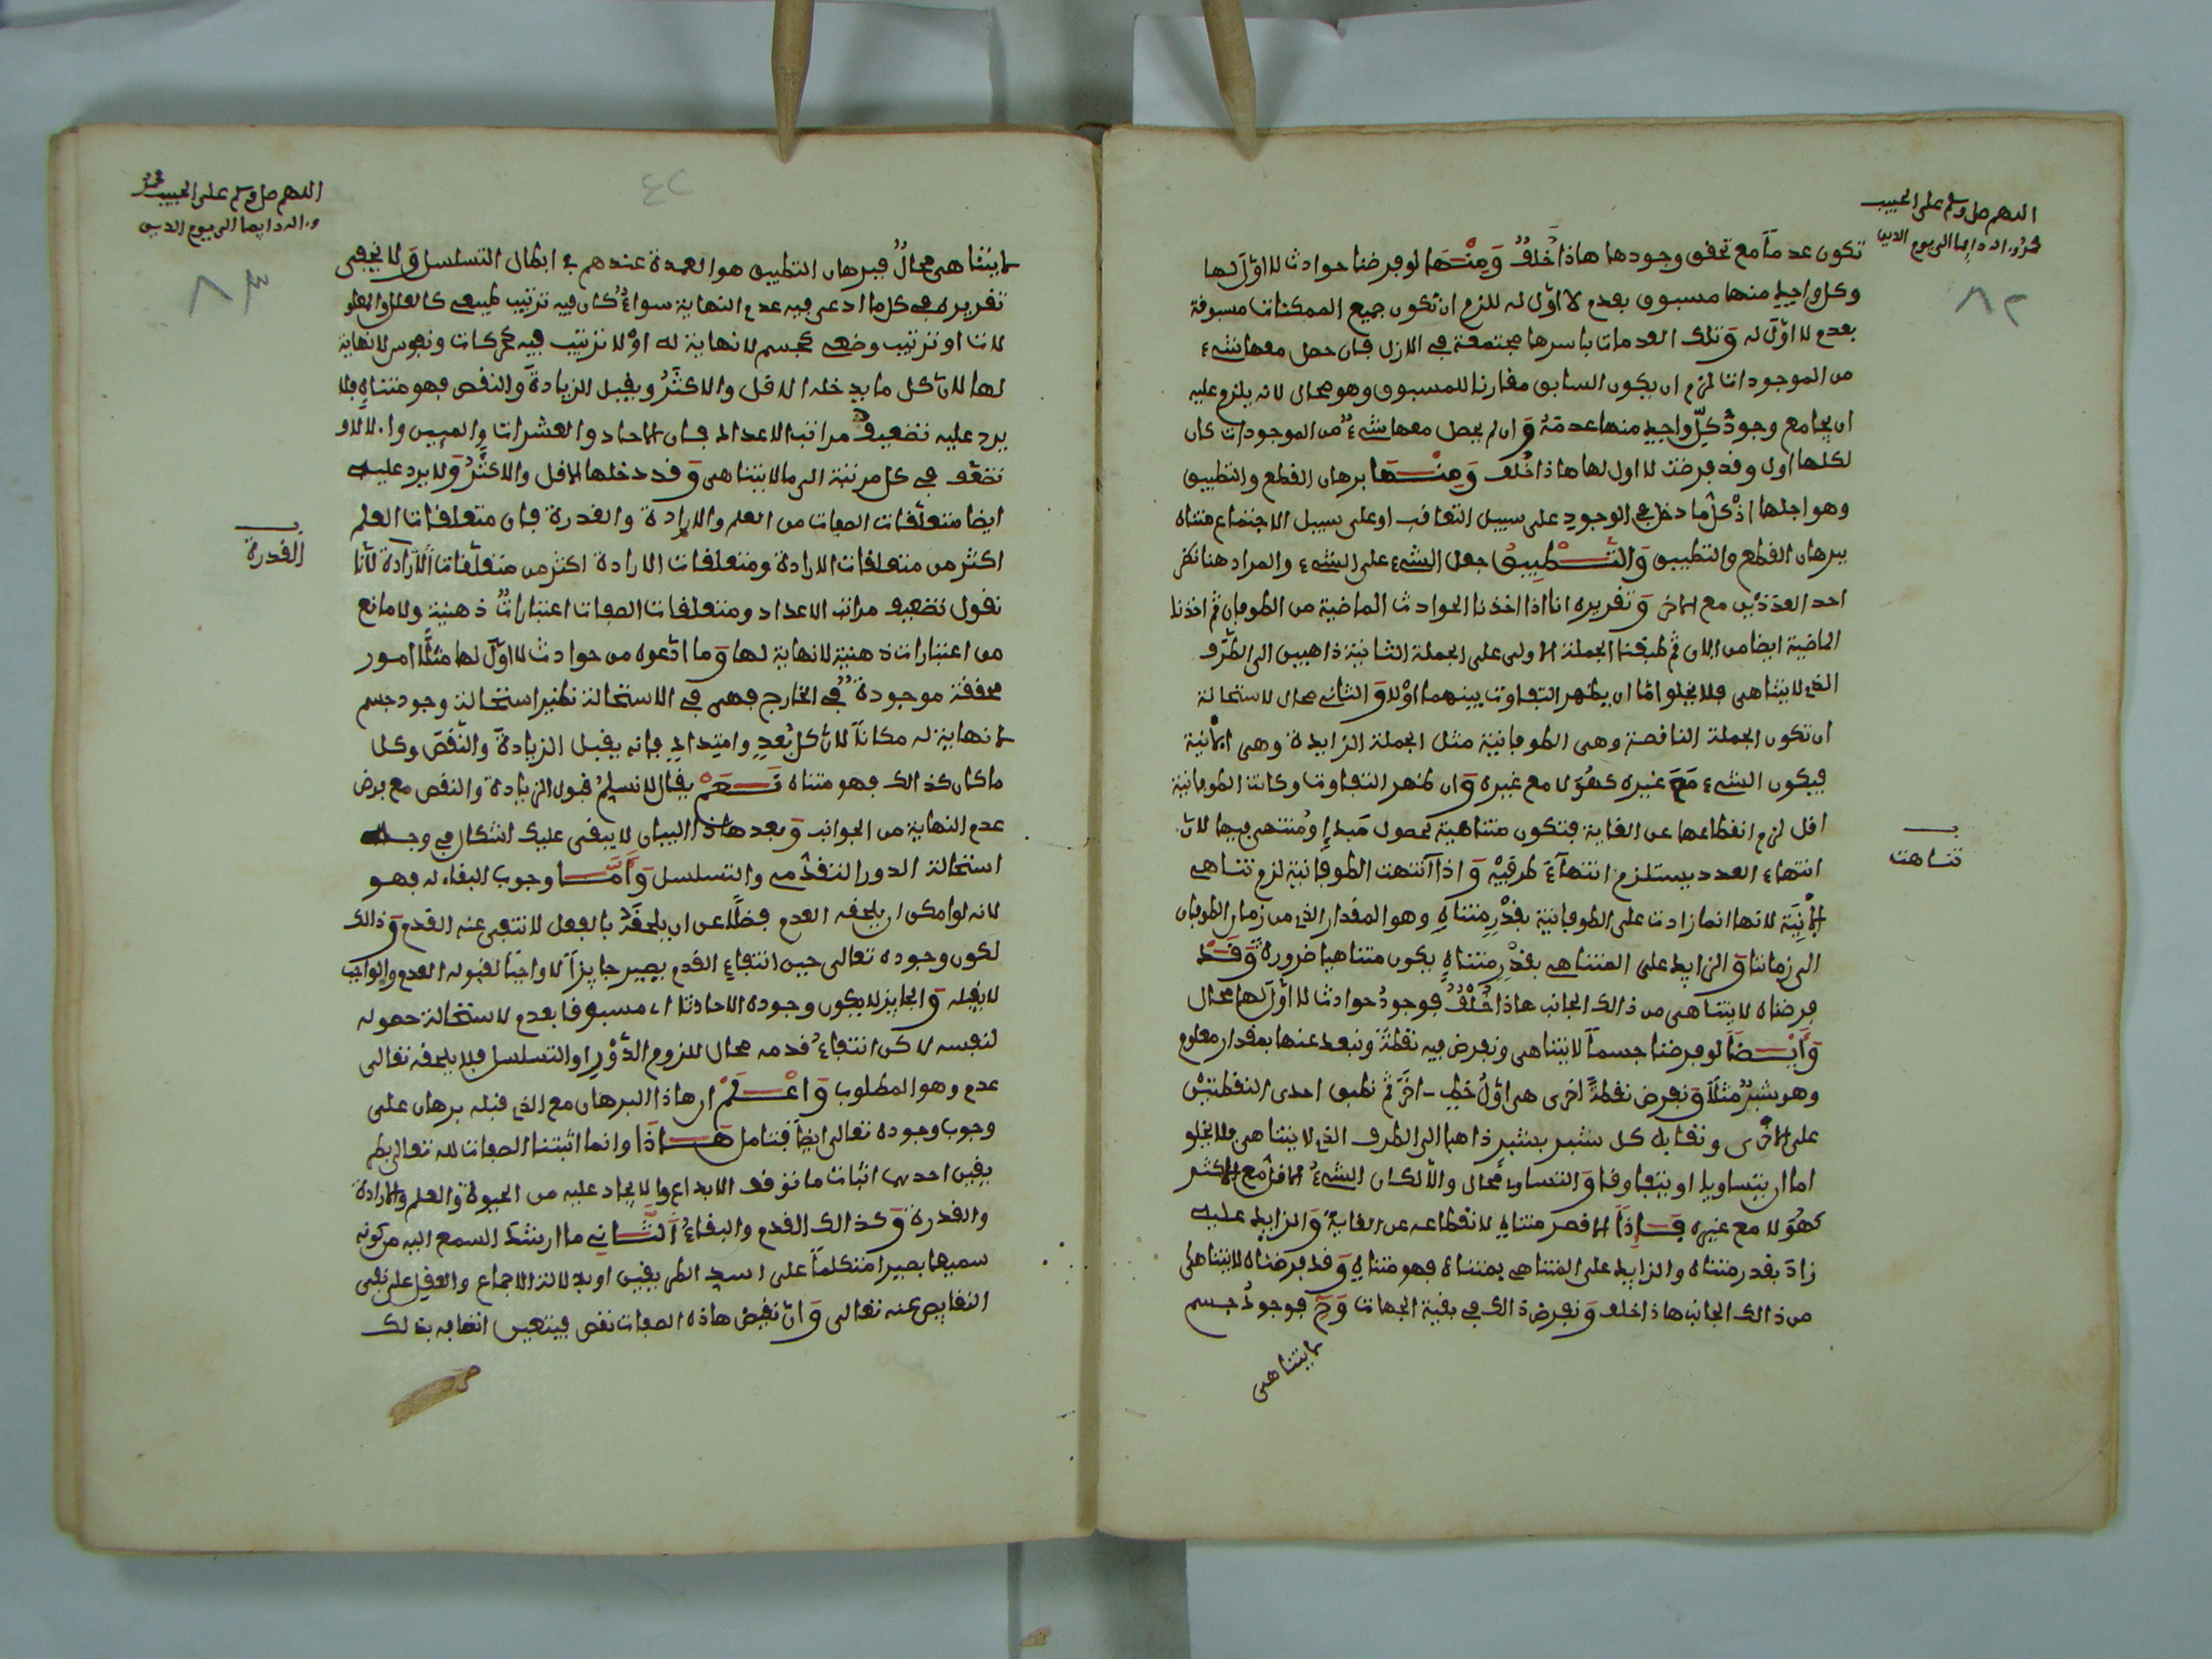 اللهم صل وسلم على الحبيب
محمد وءاله دايما الى يوم الدين
٨٢
تكون عدمًا مع تحقق وجودها هاذا خُلْفٌ وَمِنْهَا لو فرضنا حوادث لا اوّل لها
وكل واحِدٍ منها مسبوق بعدم لا اوّل له للزم ان تكون جميع الممكنات مسبوقة
بعدم لا اوّل له وَتلك العدمات باسرها مجتمعة في الازل فان حصل معها شىء
من الموجودات لزم ان يكون السابق مقارنا للمسبوق وهو محال لانه يلزم عليه
ان يجامع وجودُ كلِّ واحِدٍ منها عدمَهُ وَان لم يحصل معها شىءٌ من الموجودات كان
لكلها اول وقد فرضت لا اول لها هاذا خُلف وَمِنْهَا برهان القطع والتطبيق
وهو اجلها اذْ كلّ ما دخل في الوجود على سبيل التعاقب او على سبيل الاجتماع متناه
ببرهان القطع والتطبيق وَالتَّطْبِيقُ جعل الشىء على الشىء والمراد هنا نظر
احد العددين مع الاخر وَتقريره انا اذا اخذنا الحوادث الماضية من الطوفان ثم اخذنا
الماضية ايضا من الان ثم طبقنا الجملة الاولى على الجملة الثانية ذاهبين الى الطَّرَف
الذي لا يتناهى فلا يخلو امّا ان يظهر التفاوت بينهما اوْ لا وَالثاني محال لاستحالة
ان تكون الجملة الناقصة وهي الطوفانية مثل الجملة الزايدة وهي الانية
فيكون الشىء مَعَ غيره كهُوَ لا مع غيره وَان ظهر التفاوت وكانت الطوفانية
اقل لزم انقطاعها عن الغاية فتكون متناهية لحصول مَبدإٍ وُمنتهى فيها لان
انتهاء العدد يستلزم انتهاءَ طرفيْه وَاذا انتهت الطوفانية لزم تناهي
الانِيَة لانها انما زادت على الطوفانية بقدْرٍ متناهٍ وهو المقدار الذي من زمان الطوفان
الى زماننا وَالزايد على المتناهي بقدْرٍ متناهٍ يكون متناهيا ضرورةً وَقَدْ
فرضناه لا يتناهى من ذالك الجانب هاذا خُلْفٌ فوجودُ حوادث لا اوّل لها محال
وَأَيْضًا لو فرضنا جسمًا لا يتناهى ونفرض فيه نقطةً ونبعد عنها بمقدار معلوم
وهو شبْرٌ مثلاً وَنفرض نقطةً اخرى هي اوّلُ خطٍّ ءاخرَ ثم نطبق احدى النقطتين
على الاخرى ونقابل كل شبر بشبر ذاهبا الى الطرف الذي لا يتناهى فلا يخلو
اما ان يتساويا او يتفاوتا وَالتساوي محال والّا لكان الشىءُ الاقل مع الاكثر
كهُوَ لا مع غيره فَإِذًا الاقصر متناهٍ لانقطاعه عن الغاية وَالزايد عليه
زادَ بقدر متناه والزايد على المتناهي بمتناه فهو متناهٍ وَقد فرضناه لا يتناهى
من ذالك الجانب هاذا خلف وَنفرض ذالك في بقية الجهات وَحَ فوجودُ جسم
لا يتناهى
تناهت
اللهم صل وسلم على الحبيب محمد
وءاله دايما الى يوم الدين
٨٣
٤٢
لا يتناهى محالٌ فبرهان التطبيق هو العمدة عندهم في ابطال التسلسل وَلا يخفى
تقريره في كل ما ادعى فيه عدم النهاية سواءٌ كان فيه ترتيب طبيعي كالعلل والمعلو
لات او ترتيب وضعي كجسم لا نهاية له اوْ لا ترتيب فيه كحركات ونفوس لا نهاية
لها لان كل ما يدخله الاقل والاكثرُ ويقبل الزيادةَ والنقص فهو متناهٍ فلا
يرد عليه تضعيف مراتب الاعداد فان الاحاد والعشرات والميين والالاو
تضعّف في كل مرتبة الى ما لا يتناهى وَقد دخلها الاقل والاكثرُ وَلا يرد عليه
ايضا متعلّقات الصفات من العلم والارادة والقدرة فان متعلقات العلم
اكثر من متعلقات الارادة ومتعلقات الارادة اكثر من متعلّقات الارادة لأنّا
نقول تضعيف مراتب الاعداد ومتعلقات الصفات اعتباراتٌ ذهنية ولا مانع
من اعتبارات ذهنية لا نهاية لها وَما ادّعوه من حوادث لا اوّل لها مثلًا امور
محققة موجودةٌ في الخارج فهي في الاستحالة نظير استحالة وجود جسم
لا نهاية له مكاناً لان كل بُعدٍ وامتِدادٍ فإنه يقبل الزيادةَ والنّقصَ وكل
ما كان كذالك فهو متناه نَعَمْ يقال لا نسلمُ قبول الزيادة والنقص مع فرض
عدم النهاية من الجوانب وَبعد هاذا البيان لا يبقى عليك اشكال في وجه
استحالة الدور التقدّمي والتسلسل وَأَمَّا وجوب البقاء له فهو
لانه لو امكن ان يلحقه العدم فضلًا عن ان يلحقَهُ بالفعل لانتفى عنه القدم وَذالك
لكون وجوده تعالى حين انتفاءِ القدم يصير جايزًا لا واجبًا لقبوله العدم والواجب
لا يقبله وَالجايز لا يكون وجوده الا حادثا اي مسبوقا بعدم لاستحالة حصوله
لنفسه لاكن انتفاءُ قدمه محال للزوم الدَّوْرِ او التسلسل فلا يلحقه تعالى
عدم وهو المطلوب وَاعْلَمْ ان هاذا البرهان مع الذي قبله برهان على
وجوب وجوده تعالى ايضًا فتامل هَاذَا وانما اثبتنا الصفات لله تعالى بطر
يقين احدهما اثبات ما توقف الابداع والايجاد عليه من الحيوة والعلم والارادة
والقدرة وَكذالك القدم والبقاءُ اَلثَّانِي ما ارشد السمع اليه من كونه
سميعا بصيرا متكلمًا على اسد الطريقين او بدلالة الاجماع والعقل على نفي
النقايص عنه تعالى وَانّ نقيض هاذه الصفات نقص فيتعين اتصافه بذلك
القدرة